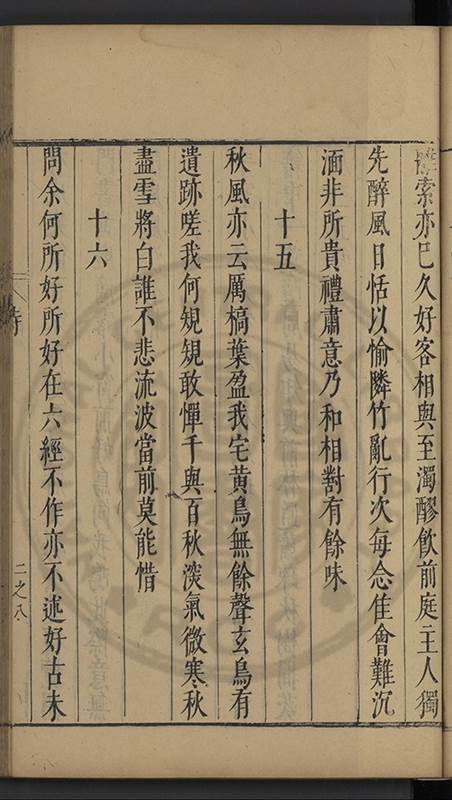 離索亦已久好客相與至濁醪飲前庭主人獨
先醉風日恬以愉隣竹亂行次每念佳會難沉
湎非所貴禮肅意乃和相對有餘味
十五
秋風亦云厲槁葉盈我宅黃鳥無餘聲玄鳥有
遺跡嗟我何規規敢憚千與百秋淡氣微寒秋
盡雪將白誰不悲流波當前莫能惜
十六
問余何所好所好在六經不作亦不述好古未
二之八